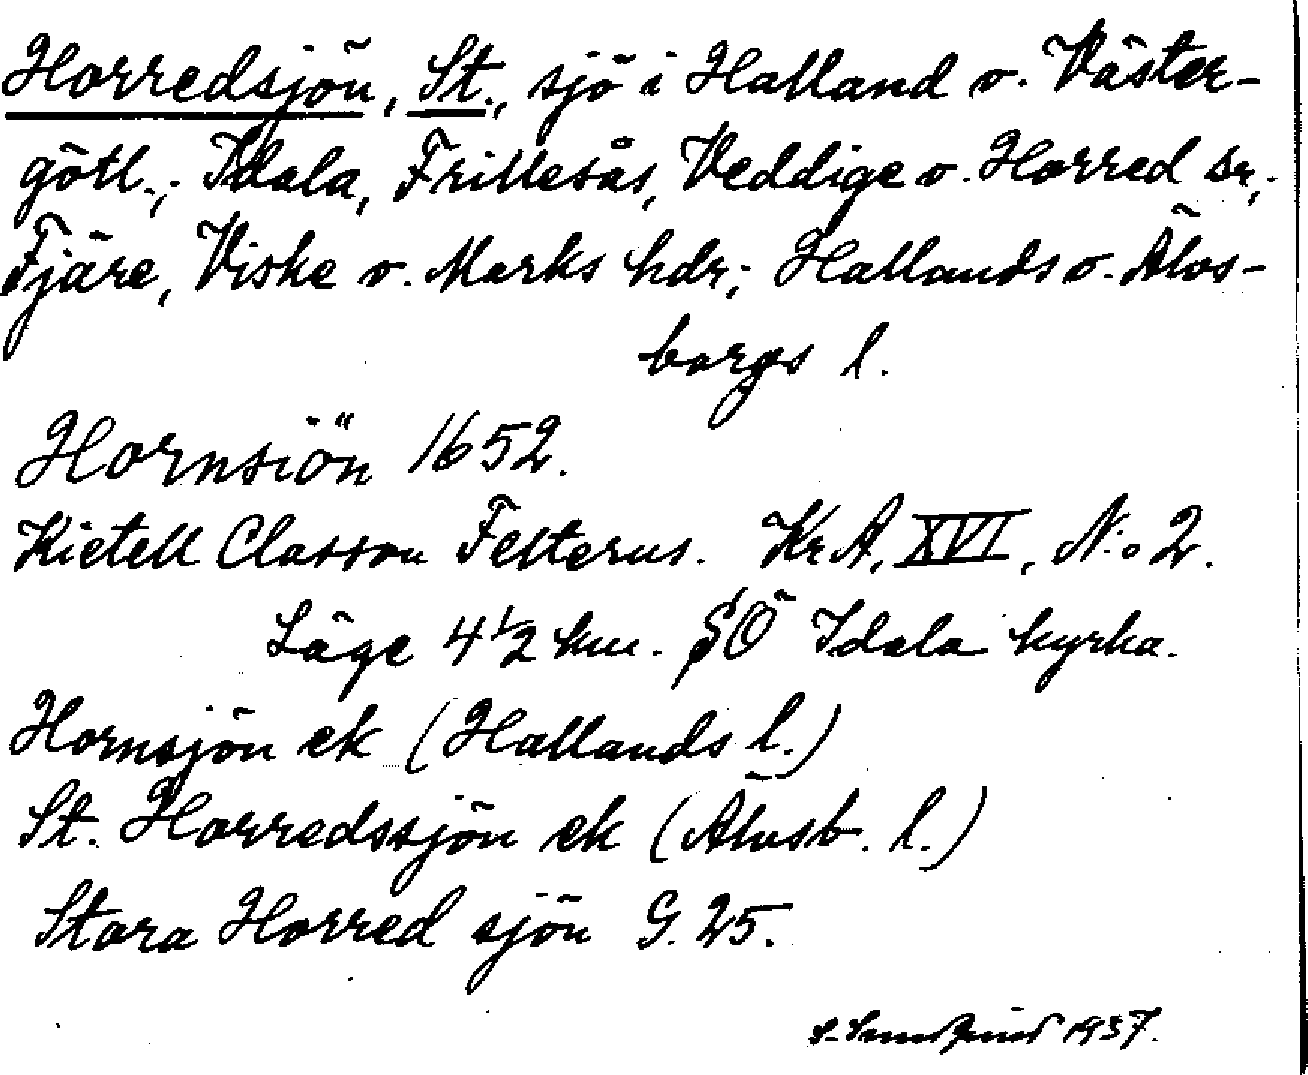 Horredsjön, St., sjö i Halland o. Väster-
götl.; Idala, Frillesås, Veddige o. Horred sn,
Fjäre, Viske o. Marks hdr; Hallands o. Älvs-
borgs l.
Hornsiön 1652.
Kietell Classon Felterus. Kr.A, XVI, N:o 2.
Läge 4 1/2 km. SÖ Idala kyrka.
Hornsjön ek (Hallands l.)
St. Horredssjön ek (Älvsb. l.)
Stora Horred sjön G. 25.
1937.